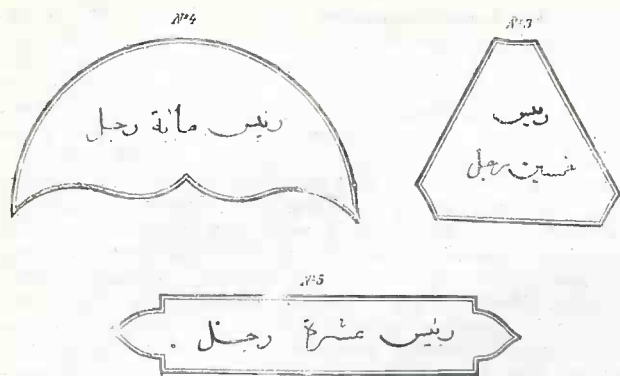 Nº 4
رئيس مائة رجل
Nº 3
رئيس
خمسين رجل
Nº 5
رئيس عشرة رجل .